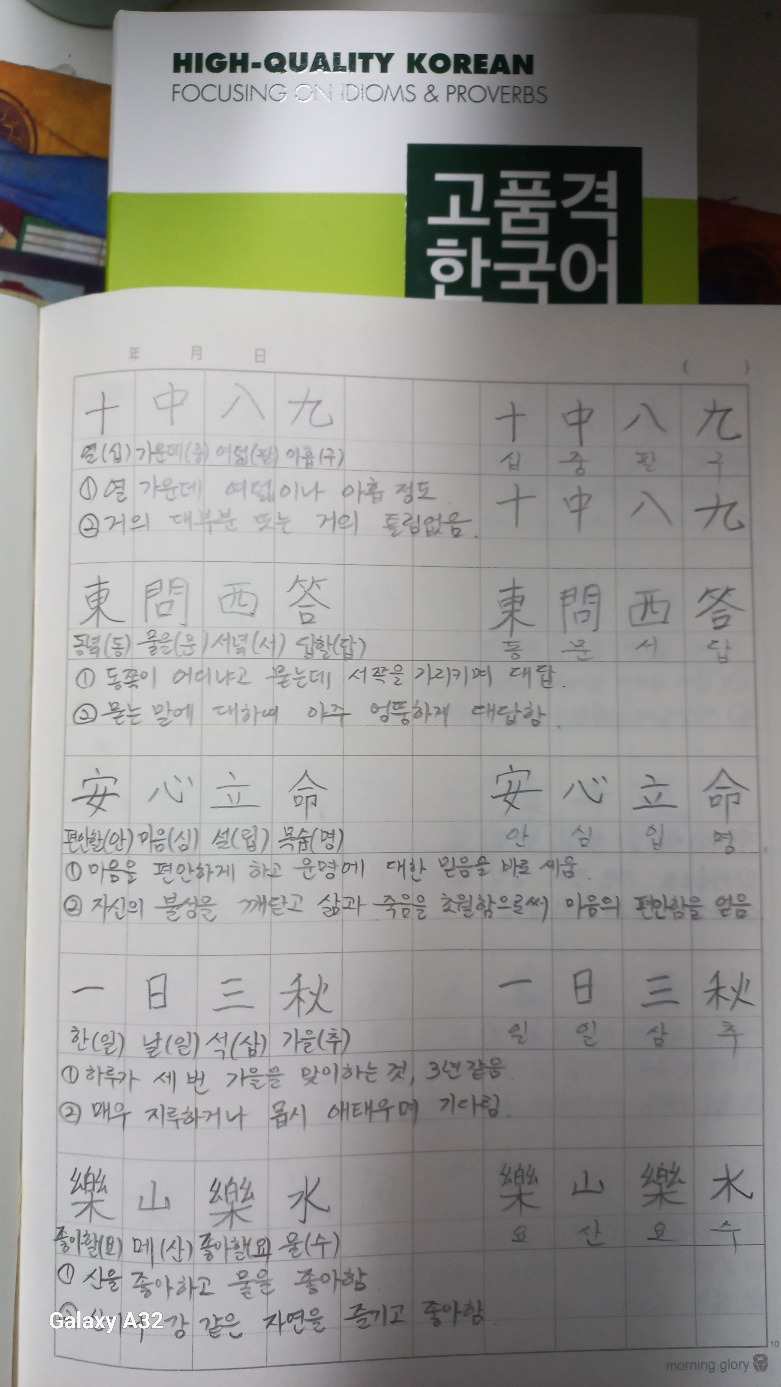 HIGH-QUALITY KOREAN
FOCUSING ON IDIOMS & PROVERBS
고품격
한국어
年 月 日 ( )
十 中 八 九 十 中 八 九
열(십) 가운데(중) 여덟(팔) 아홉(구) 십 중 팔 구
① 열 가운데 여덟이나 아홉 정도
十 中 八 九
② 거의 대부분 또는 거의 틀림없음.
東 問 西 答 東 問 西 答
동녘(동) 물을(문) 서녘(서) 답할(답) 동 문 서 답
① 동쪽이 어디냐고 묻는데 서쪽을 가리키며 대답.
② 묻는 말에 대하여 아주 엉뚱하게 대답함.
安 心 立 命 安 心 立 命
편안할(안) 마음(심) 설(립) 목숨(명) 안 심 입 명
① 마음을 편안하게 하고 운명에 대한 믿음을 바로 세움.
② 자신의 불성을 깨닫고 삶과 죽음을 초월함으로써 마음의 편안함을 얻음
一 日 三 秋 一 日 三 秋
한(일) 날(일) 석(삼) 가을(추) 일 일 삼 추
① 하루가 세 번 가을을 맞이하는 것, 3년 같음
② 매우 지루하거나 몹시 애태우며 기다림.
樂 山 樂 水 樂 山 樂 水
좋아할(요) 메(산) 좋아할(요) 물(수) 요 산 요 수
① 산을 좋아하고 물을 좋아함
강 같은 자연을 즐기고 좋아함
Galaxy A32
10
morning glory